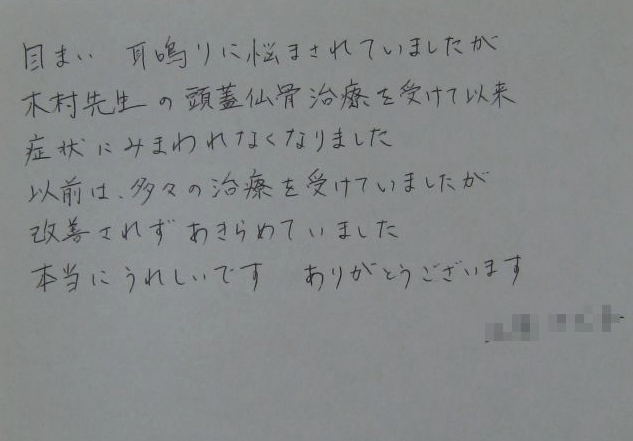 目まい 耳鳴りに悩まされていましたが
木村先生の頭蓋仙骨治療を受けて以来
症状にみまわれなくなりました
以前は、多々の治療を受けていましたが
改善されずあきらめていました
本当にうれしいです ありがとうございます